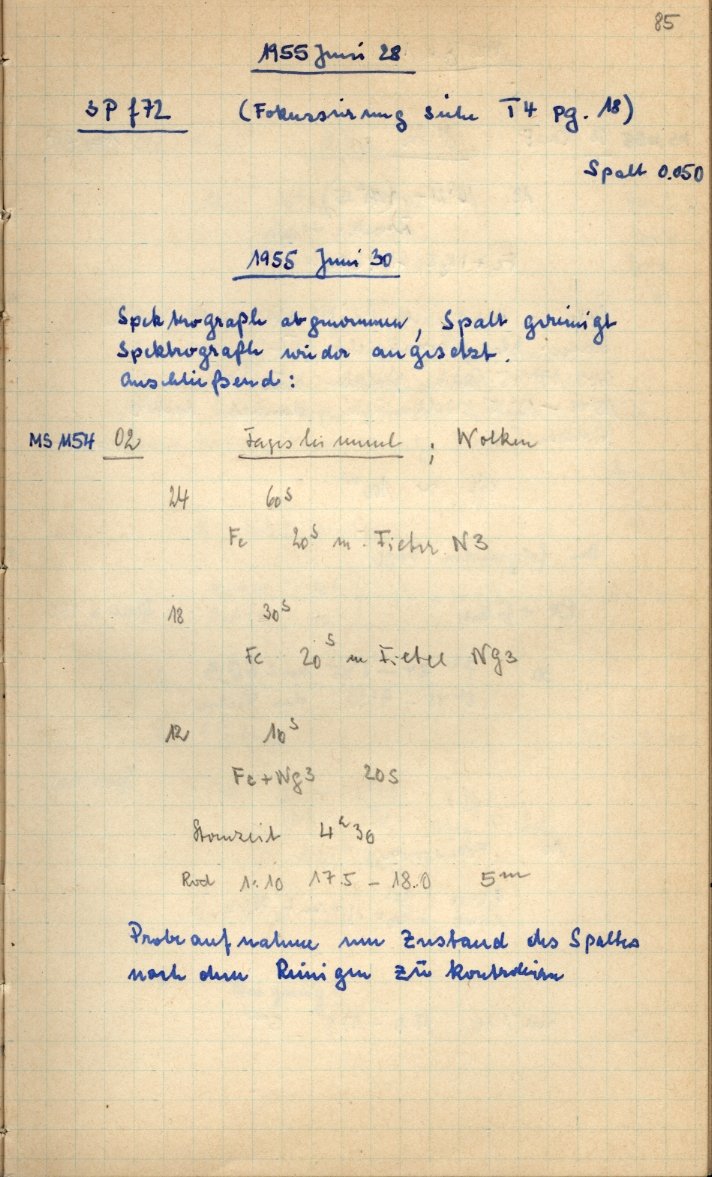 85
1955 Juni 28
SP f72 (Fokussierung siehe T4 pg. 18)
Spalt 0.050
1955 Juni 30
Spektrograph abgenommen, Spalt gereinigt
Spektrograph wieder angesetzt.
Anschließend:
MS 1154 02 Tageshimmel ; Wolken
24 60s
Fe 20s m. Filter N3
18 30s
Fe 20s m Filter Ng3
12 10s
Fe+Ng3 20s
Sternzeit 4h 36
Rod 1:10 17.5 - 18.0 5m
Probeaufnahme um Zustand des Spaltes
nach dem Reinigen zu kontrollieren